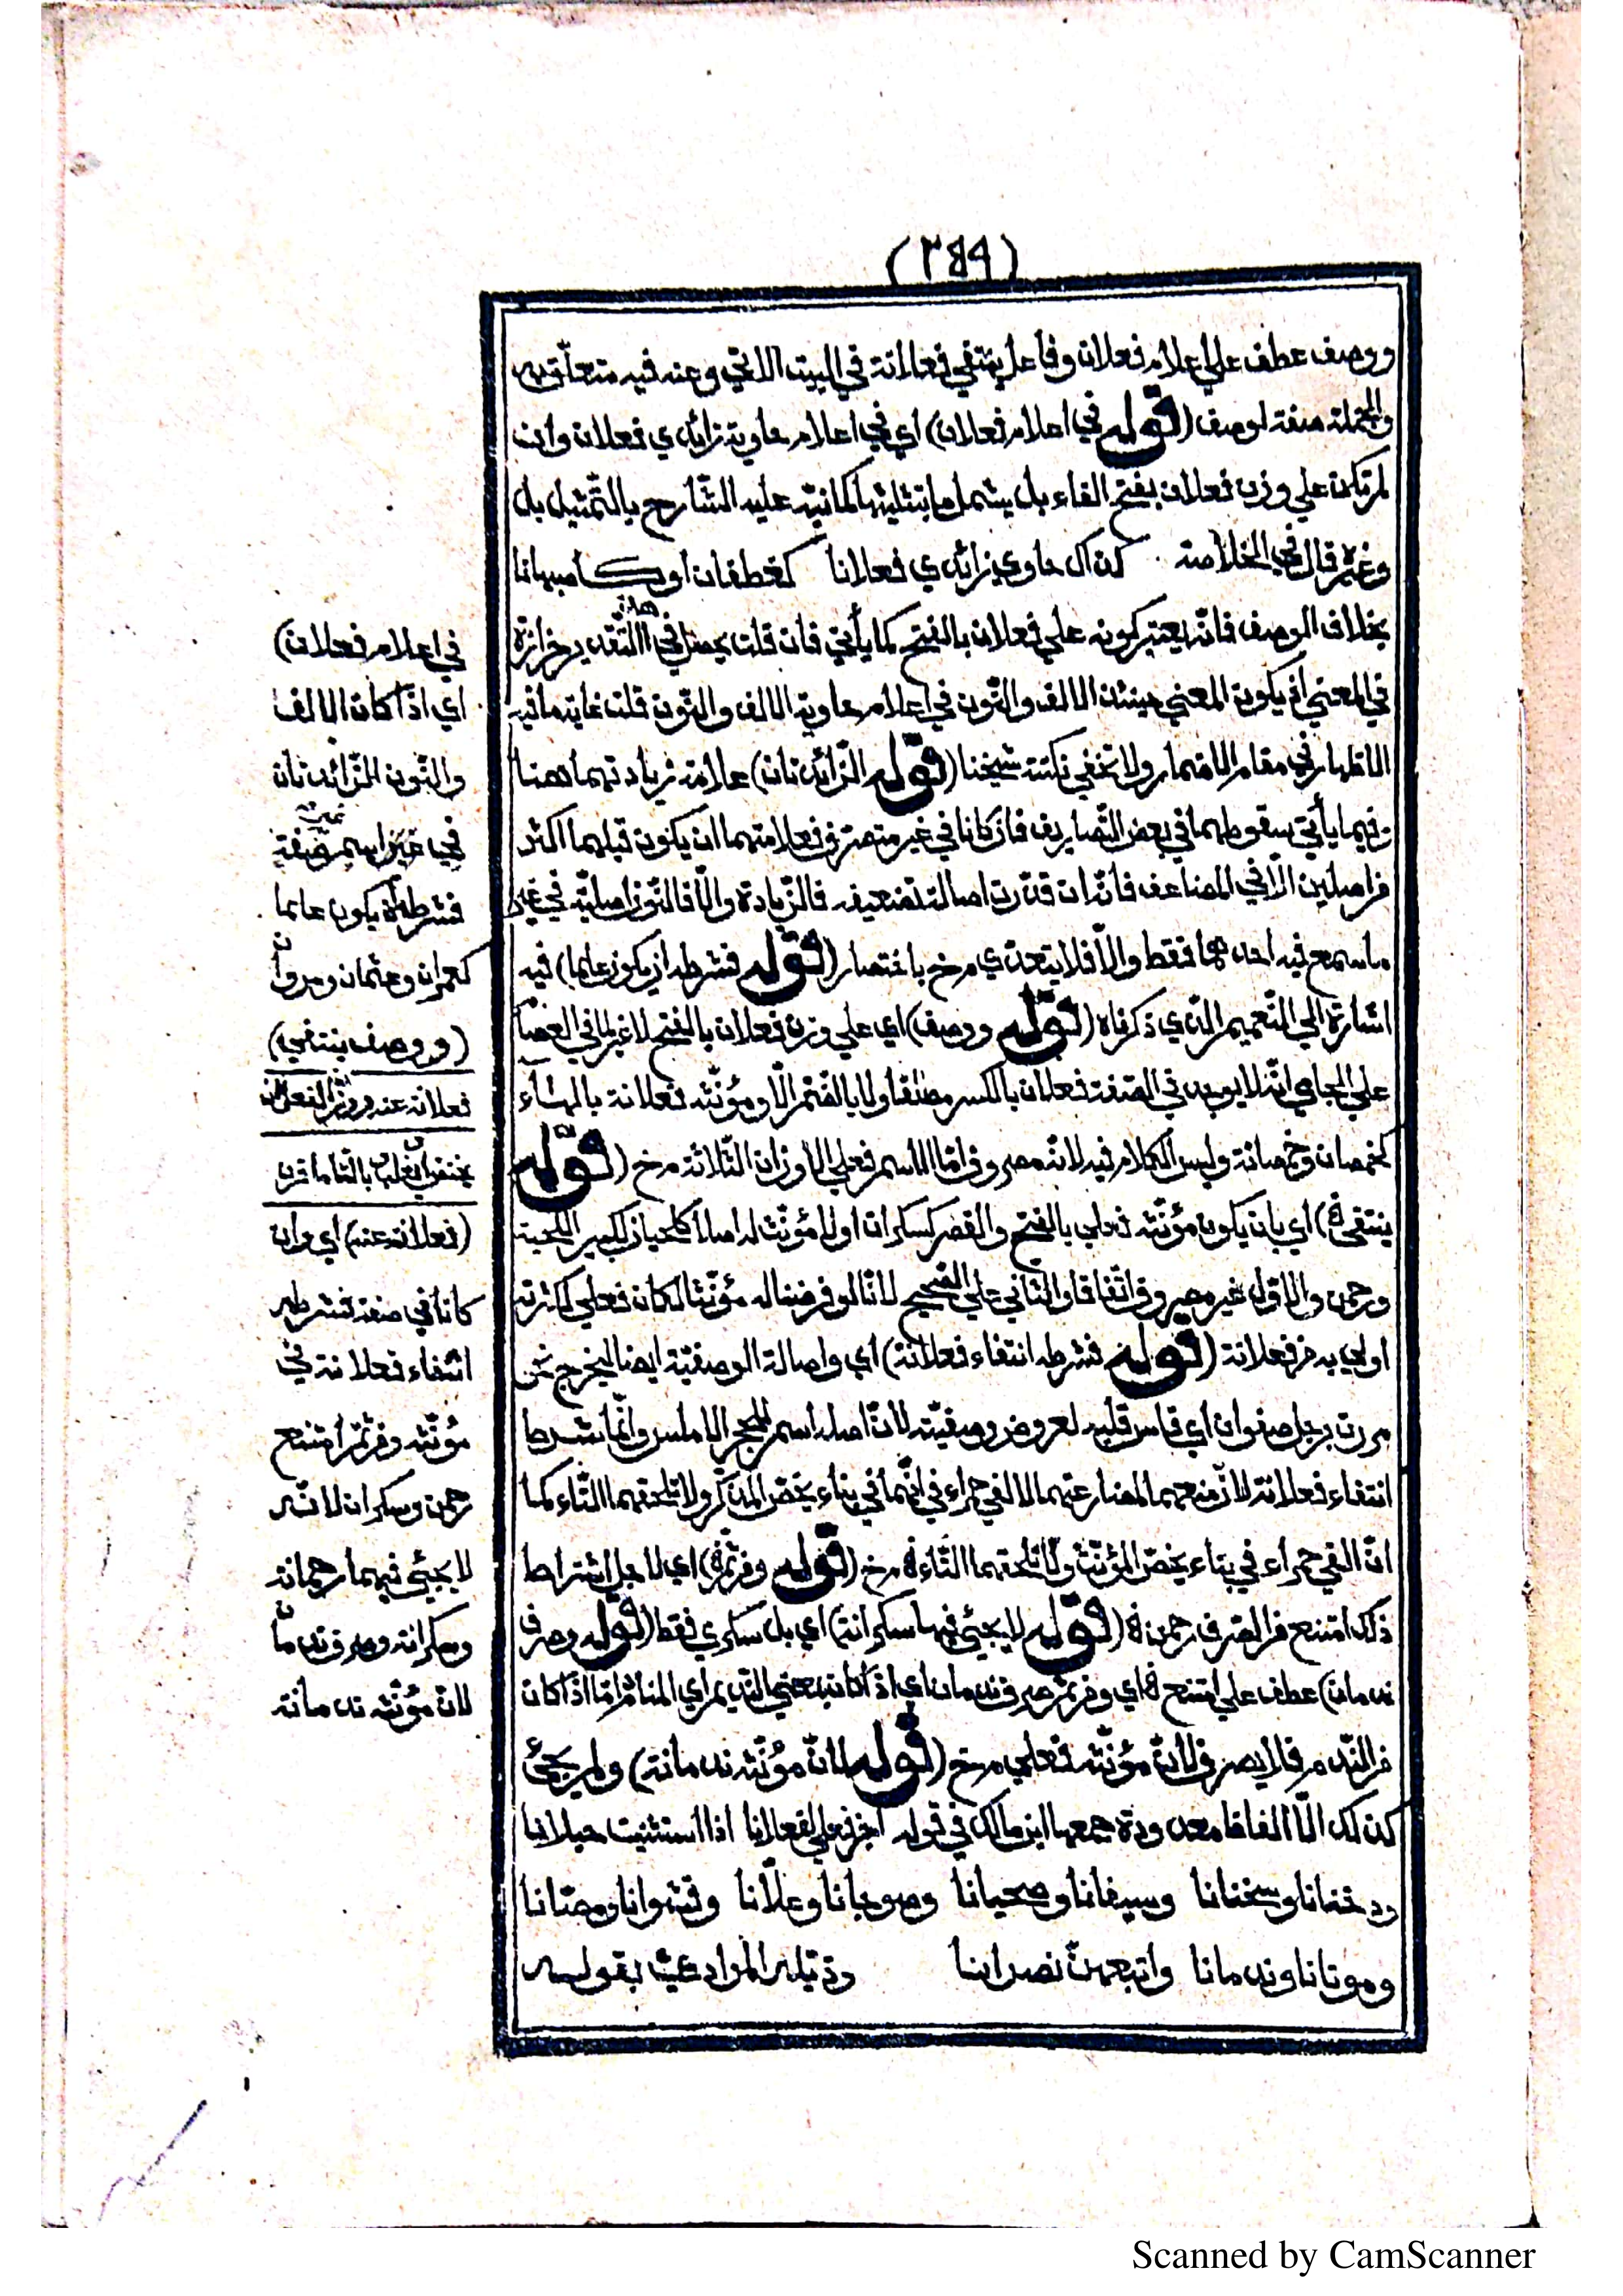 (٢٤٩)
ووصف عطف علي اعلام فعلان وفاعل ينتفي فعلانة في البيت الاتي وعنه فيه متعلّق به
والجملة صفة لوصف (قوله في اعلام فعلان) أي في اعلام حاوية زائدي فعلان وان
لم تكن علي وزن فعلان بفتح الفاء بل يشمل ما بتثليثها كما نبّه عليه الشّارح بالتّمثيل بل
وغيره قال في الخلاصة كذاك حاوي زائدي فعلانا كغطفان او كأصبهانا
بخلاف الوصف فانّه يعتبر كونه علي فعلان بالفتح كما يأتي فان قلت يحصل في هذا التّقدير حزازة
في المعني اذ يكون المعني حينئذ الالف والنّون في اعلام حاوية الالف والنّون قلت غاية ما فيه
الاظهار في مقام الاضمار ولا تخفي نكتته شيخنا (قوله الزّائدتان) علامة زيادتهما هنا
وفيما يأتي سقوطهما في بعض التّصاريف فان كانا في غير متصرّف فعلامتهما ان يكون قبلهما اكثر
من اصلين الّا في المضاعف فانّه ان قدّرت اصالة تضعيفه فالزّيادة والّا فالنّون اصليّة في غير
ما سمع فيه احدهما فقط والّا فلا يتعدّي مرخ باختصار (قوله فشرطه ان يكون علما) فيه
اشارة الي التّعميم الذي ذكرناه (قوله ووصف) اي علي وزن فعلان بالفتح لا غير لما في العصّا
علي الجامي انّه لا يوجد في الصّفة فعلان بالكسر مطلقا ولا بالضّم الّا ومؤنّثه فعلانة بالهاء
كخمصان وخمصانة وليس الكلام فيه لانّه مصروف امّا الاسم فعلي الاوزان الثّلاثة مرخ (قوله
ينتفي) اي بان يكون مؤنّثه فعلي بالفتح والقصر كسكران اولا مؤنّث له اصلا كلحيان لكبير اللّحية
ورحمن والاوّل غير مصروف اتّفاقا والثاني علي الصّحيح لانّا لو فرضنا له مؤنّثا لكان فعلي لكثرته
اولي به من فعلانة (قوله فشرطه انتفاء فعلانة) أي واصالة الوصفيّة ايضا ليخرج نحو
مررت برجل صفوان اي قاس قلبه لعروض وصفيّته لانّ اصله اسم للحجر الاملس وانّما شرط
انتفاء فعلانة لانّ منعهما لمضارعتهما لالفي حمراء في انّهما في بناء يخصّ المذكّر ولا تلحقهما التّاء كما
انّ الفي حمراء في بناء يخصّ المؤنّث ولا تلحقهما التّاء مرخ (قوله ومن ثمّ) اي لاجل اشتراط
ذلك امتنع من الصّرف رحمن (قوله لا يجيئ فيها سكرانة) اي بل سكري فقط (قوله وصرف
ندمان) عطف علي امتنع اي ومن ثمّ صرف ندمان اي اذا كان بمعني النّديم اي المنادم امّا اذا كان
من النّدم فلا يصرف لانّ مؤنّثه فعلي مرخ (قوله لانّ مؤنّثه ندمانة) ولم يجئ
كذلك الّا الفاظا معدودة جمعها ابن مالك في قوله اجز فعلي لفعلانا اذا استثنيت حبلانا
ودخنانا وسخنانا وسيفانا وصحيانا وصوجانا وعلّانا وقشوانا ومصّانا
وموتانا وندمانا واتبعهنّ نصرانا وذيّله المرادي بقوله
في اعلام فعلان)
اي اذا كان الالف
والنّون الزّائدتان
في غير اسم صفة
فشرطه ان يكون علما
كعمران وعثمان ومروان
(ووصف ينتفي)
(فعلانة عنه) اي وان
كانا في صفة فشرطه
انتفاء فعلانة في
مؤنّثه ومن ثمّ امتنع
رحمن وسكران لانّه
لا يجيئ فيهما رحمانة
وسكرانة وصرف ندمان
لانّ مؤنّثه ندمانة
Scanned by CamScanner